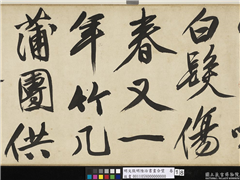 白髮傷
春又一
年竹几
蒲團供